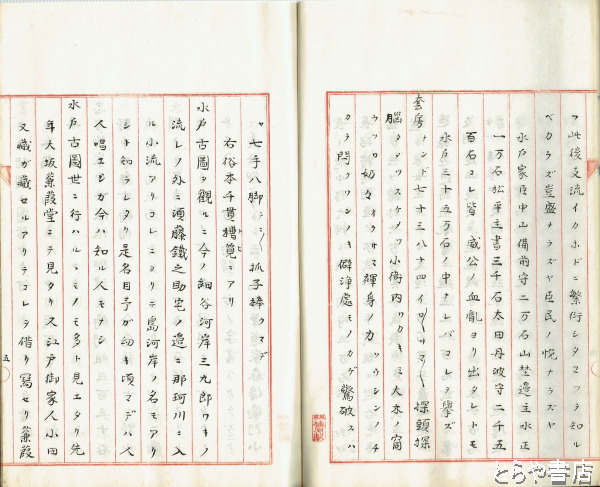 ツ此後支流イカホドニ繁衍シタマフヲ知ル
ベカラズ豈盛ナラズヤ臣民ノ悦ナラズヤ
水戸家臣中山備前守二万石山埜邊主水正
一万石松平主書三千石太田丹波守二千五
百石コレ皆 威公ノ血胤ヨリ出タレトモ
水戸三十五万石ノ中ナレバコレヲ挙ズ
套房ナンド七十三八十四イ 探頭探
脳タツスケメツ小衛内ワカキミ大木ノ甯
ウツロ奶々イクサマ禪身ノカツウシンノチ
カラ悶クワンノキ僻浄處モノカゲ驚破スハ
ツ七手八脚 抓子棒クマデ
右俗本千貫櫃筧ニアリ
水戸古圖ヲ觀ルニ今ノ細谷河岸三九郎ワキノ
流レノ外ニ須藤鐵之助宅ノ邉ニ那珂川ニ入
ル小流アリコレニヨリテ島河岸ノ名モアリ
シト知ラレタリ是名目予が幼キ頃マデハ人
人唱エシガ今ハ知ル人モナシ
水戸古圖世ニ行ハルヽモノモ多ト見エタリ先
年大坂蒹葭堂ニテ見タリ又江戸御家人小田
又蔵ガ蔵セルアリテコレヲ借リ寫セリ蒹葭
五
とらや書店